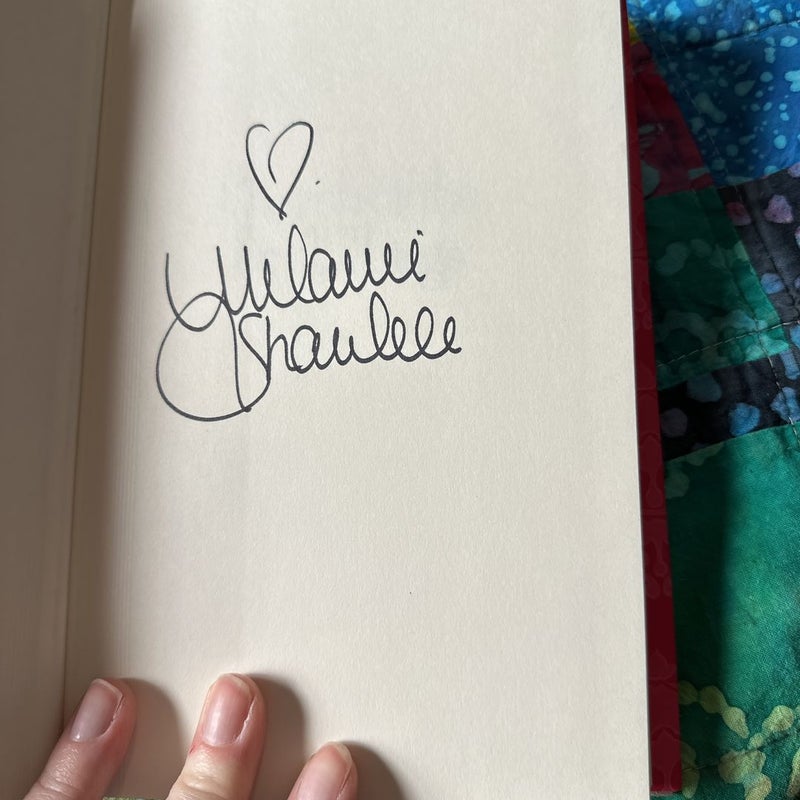 Melanie
Shankle